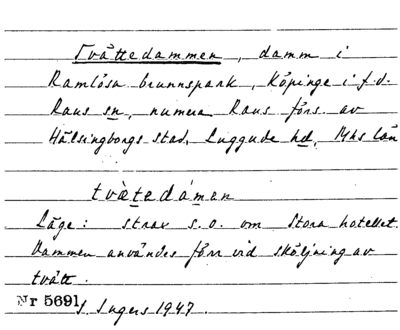 Tvättedammen, damm i
Ramlösa brunnspark, Köpinge i f.d.
Raus sn, numera Raus förs. av
Hälsingborgs stad, Luggude hd, Mhs län
tvὰtedámen
Läge: strax s.o. om Stora hotellet.
Dammen användes förr vid sköljning av
tvätt.
Nr 5691
S. Ingers 1947.